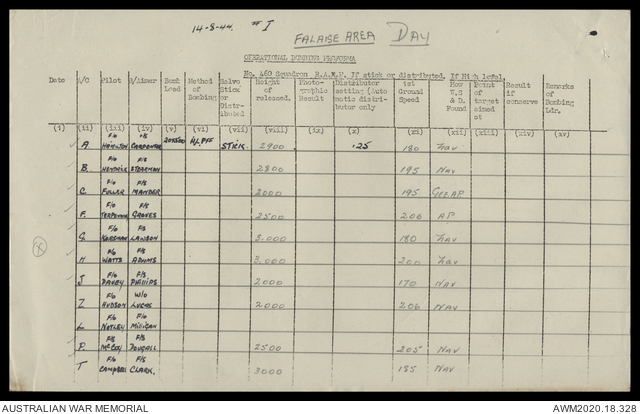 14-8-44. # I
FALAISE AREA DAY
OPERATIONAL BOMBING PROFORMA
No. 460 Squadron R.A.A.F. If stick or distributed. If High level.
Date A/C Pilot B/Aimer Bomb Load Method of Bombing Salvo Stick or Distributed Height of released. Photographic Result Distributor setting (Auto matic distributor only 1st Ground Speed How W.S & D. Found Point of target aimed at Result if conserve Remarks of Bombing Ldr.
(i) (ii) (iii) (iv) (v) (vi) (vii) (viii) (ix) (x) (xi) (xii) (xiii) (xiv) (xv)
F/O
A HAMILTON CARPENTER STICK 2900 .25 180 Nav
F/O F/S
B. STEARMAN 2800 195 Nav
F/O F/S
C. FULLER MANDER 2000 195 Gee AP
F/O F/S
F. GROVES 2500 206 AP
F/O F/S
G. LAWSON 3.000 180 Nav
F/O F/S
H WATTS ADAMS 3.000 200 Nav
F/O F/S
J DAVEY PHILLIPS 2000 170 NAV
F/O W/O
Z HUDSON LUCAS 2000 206 NAV
F/O F/O
L NOTLEY MILLIGAN
F/S F/S
P. McCOY DOUGALL 2500 205 NAV
F/O F/S
T CAMPBELL CLARK. 3000 185 NAV
AUSTRALIAN WAR MEMORIAL AWM2020.18.328